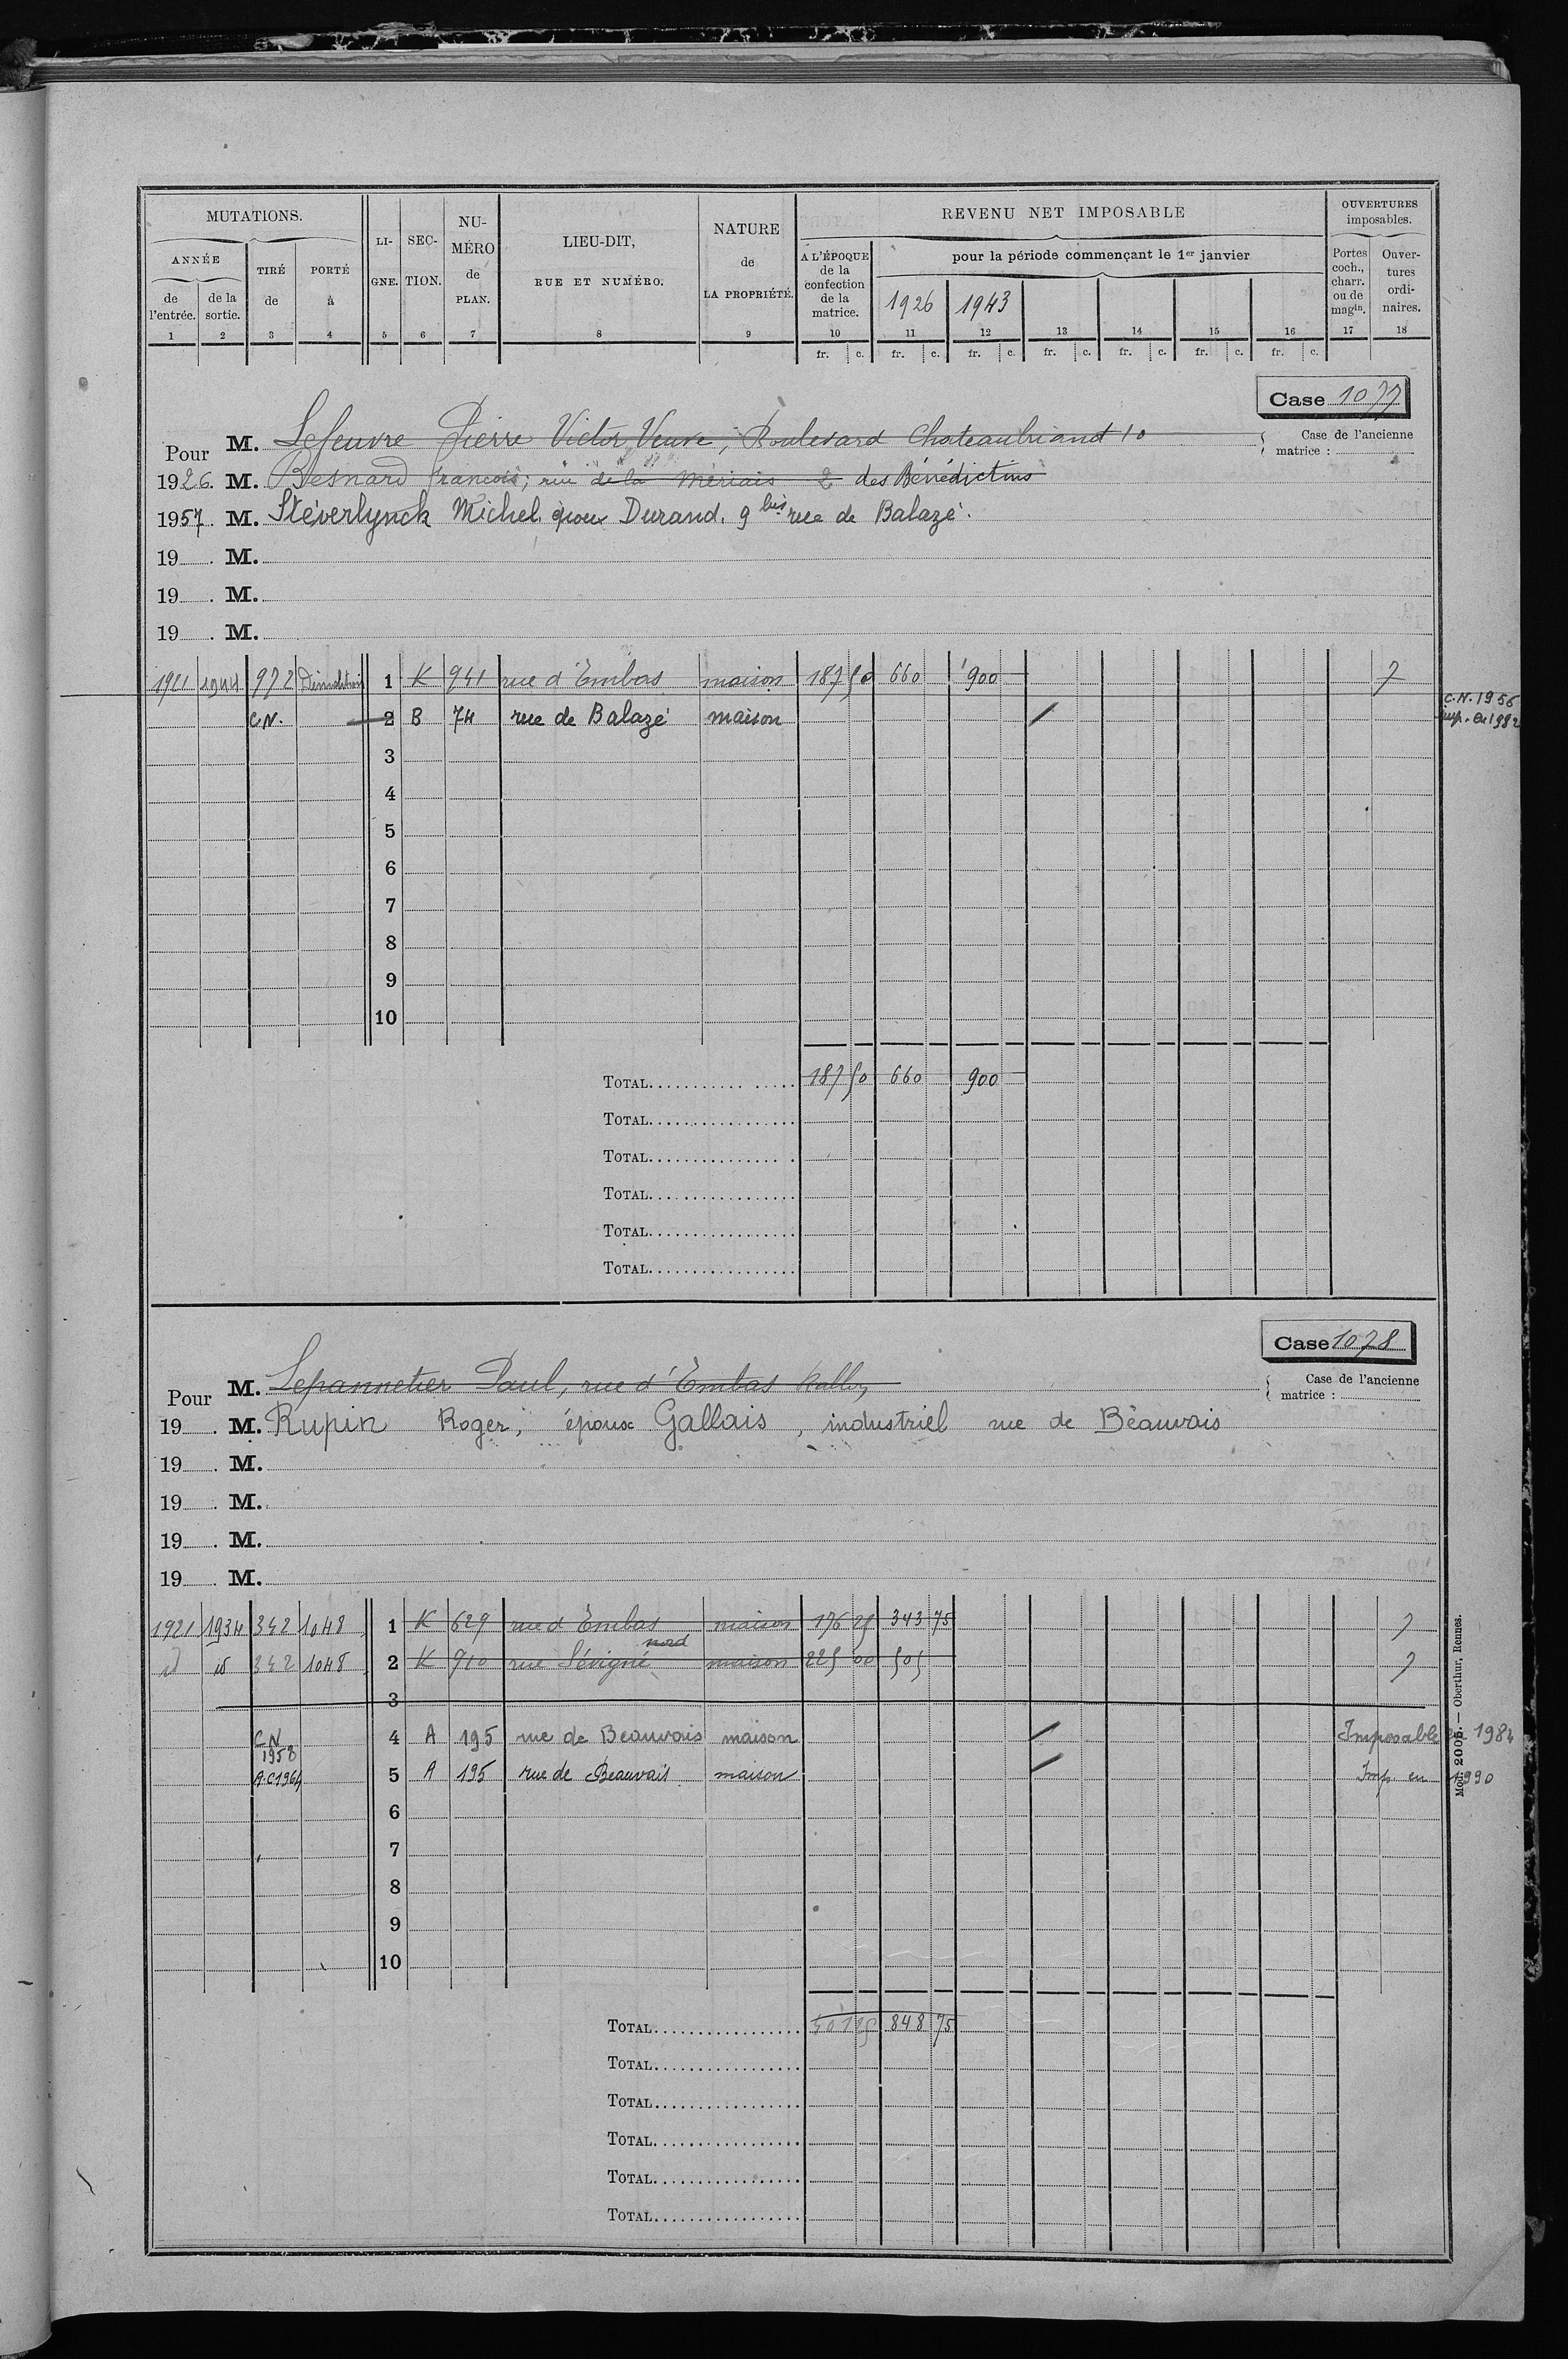 MUTATIONS.
ANNÉE
de l'entrée.
de la sortie.
TIRÉ de
PORTÉ à
LI-GNE.
SEC-TION.
NU-MÉRO de PLAN.
LIEU-DIT, RUE ET NUMÉRO.
NATURE de LA PROPRIÉTÉ.
REVENU NET IMPOSABLE
A L'ÉPOQUE de la confection de la matrice.
pour la période commençant le 1er janvier
1926 1943
OUVERTURES imposables.
Portes coch., charr. ou de magin.
Ouver-tures ordi-naires.
1 2 3 4 5 6 7 8 9 10 11 12 13 14 15 16 17 18
fr. c. fr. c. fr. c. fr. c. fr. c. fr. c. fr. c.
Case 1077
Pour M. Lefeuvre Pierre Victor, Veuve, Boulevard Chateaubriand 10
Case de l'ancienne matrice :
1926. M. Besnard François; rue de la Mériais 2 des Bénédictins
1957 M. Stéverlynck Michel époux Durand. 9 bis rue de Balazé.
19 . M.
19 . M.
19 . M.
1921 1944 972 Démolition 1 K 941 rue d'Embas maison 187 50 660 900 7
C.N. 2 B 74 rue de Balazé maison C.N. 1956
imp. en 1982
3
4
5
6
7
8
9
10
TOTAL 187 50 660 900
TOTAL
TOTAL
TOTAL
TOTAL
TOTAL
Case 1078
Pour M. Lepannetier Paul, rue d'Embas
Case de l'ancienne matrice :
19 . M. Rupin Roger, époux Gallais, industriel rue de Beauvais
19 . M.
19 . M.
19 . M.
19 . M.
1921 1934 342 1048 1 K 629 rue d'Embas maison 176 25 343 75 7
id id 342 1048 2 K 910 rue Sévigné nord maison 225 00 505 7
3
C.N 1958 4 A 195 rue de Beauvais maison Imposable en 1984
A.C 1964 5 A 195 rue de Beauvais maison Imp. en 1990
6
7
8
9
10
TOTAL 401 25 848 75
TOTAL
TOTAL
TOTAL
TOTAL
TOTAL
Mod. 2005. — Oberthur, Rennes.